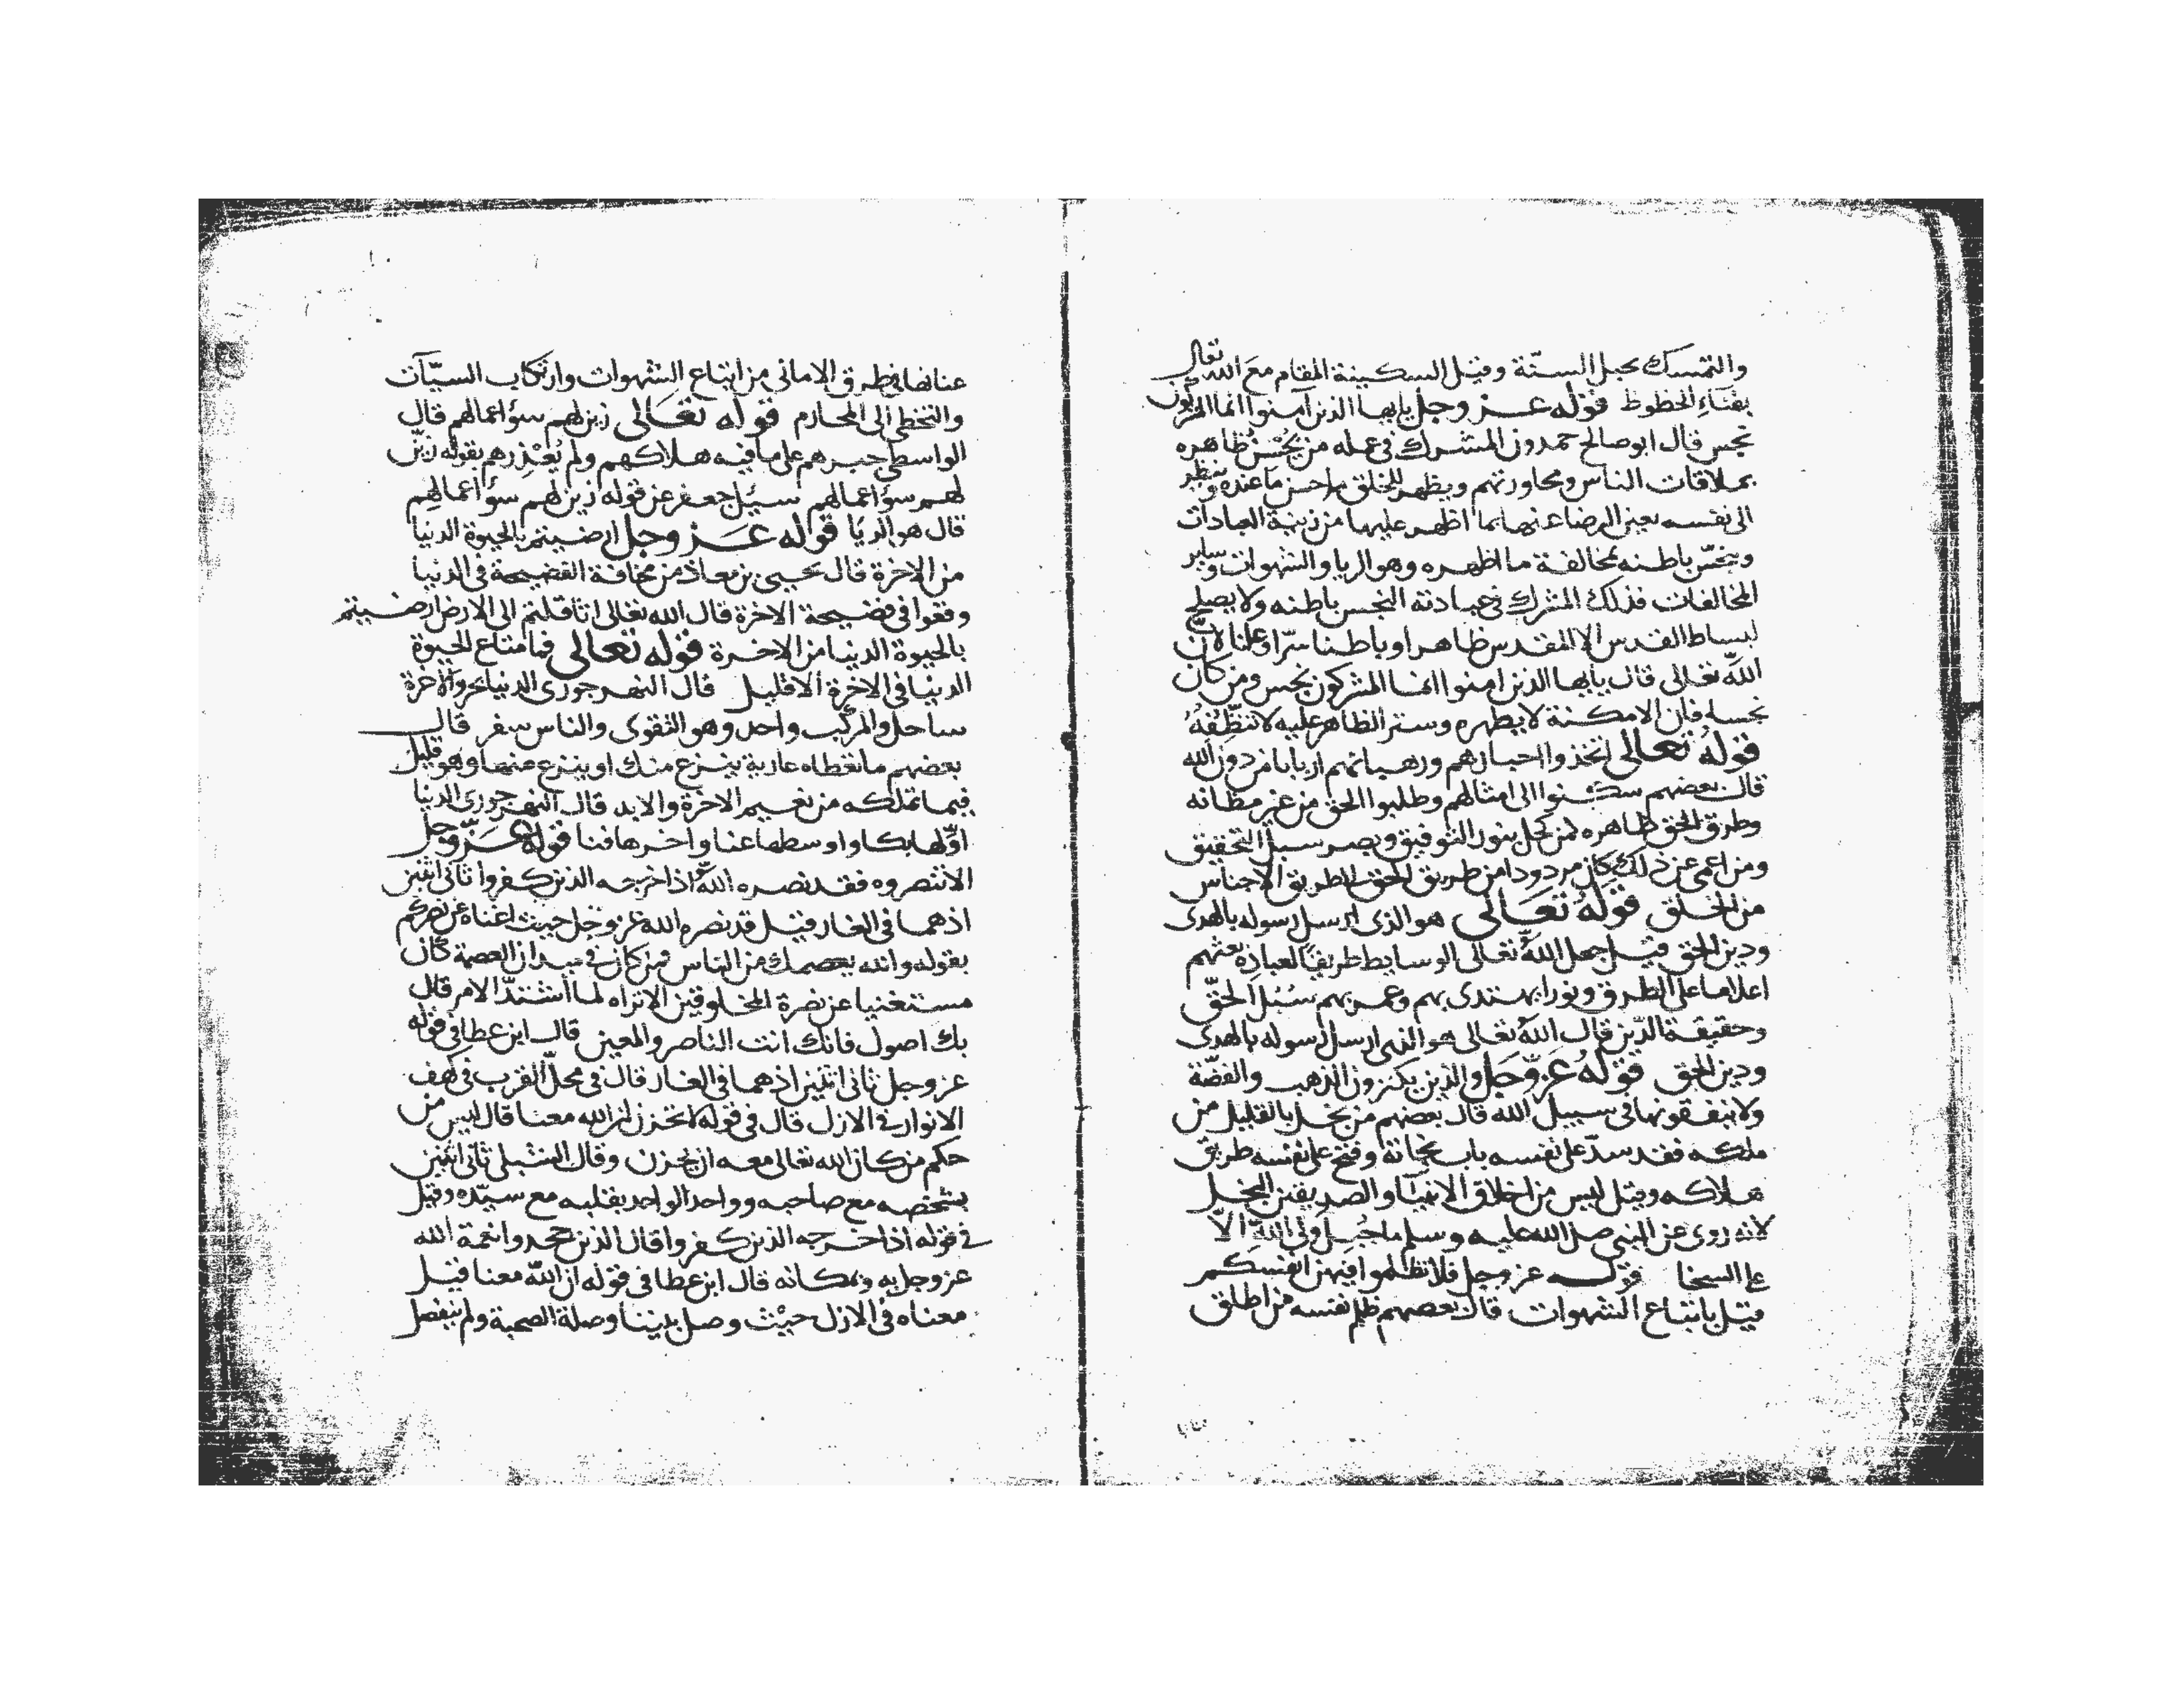 والتمسك بحبل السنة وقيل السكينة المقام مع الله تعالى
بفناء الحظوظ قوله عز وجل يا يها الذين آمنوا انما المشركون
نجس قال ابو صالح حمدون المشرك في عمله من يحسن ظاهره
بملاقات الناس ومحاورتهم ويظهر للخلق احسن ما عنده وينظر
الى نفسه بعين الرضا عنها بما اظهر عليها من زينة العبادات
وينجس باطنه بمخالفة ما اظهره وهو الريا والشهوات وساير
المخالفات فذلك المشرك في عبادته النجس باطنه ولا يصلح
لبساط القدس الا المقدس ظاهرا وباطنا سرا وعلنا لان
الله تعالى قال يا يها الذين امنوا انما المشركون نجس ومن كان
نجسا فان الامكنة لا يطهره وستر الظاهر عليه لا تنظفه
قوله تعالى اتخذوا احبارهم ورهبانهم اربابا من دون الله
قال بعضهم سكنوا الى امثالهم وطلبوا الحق من غير مظانه
وطرق الحق ظاهره لمن كحل بنور التوفيق وبصر سبل التحقيق
ومن اعمى عن ذلك كان مردودا من طريق الحق الى طريق الاجناس
من الخلق قوله تعالى هو الذى ارسل رسوله بالهدى
ودين الحق قيل جعل الله تعالى الوسايط طريقا لعباده بعثهم
اعلاما على الطرق ونورا يهتدى بهم وعمر بهم سبل الحق
وحقيقة الدين قال الله تعالى هو الذى ارسل رسوله بالهدى
ودين الحق قوله عز وجل والذين يكنزون الذهب والفضة
ولا ينفقونها في سبيل الله قال بعضهم من بخل بالقليل من
ملكه فقد سد على نفسه باب نجاته وفتح على نفسه طريق
هلاكه وقيل ليس من اخلاق الانبيا والصديقين البخل
لانه روى عن النبي صلى الله عليه وسلم ما جبل ولي الله الا
على السخا قوله عز وجل فلا تظلموا فيهن انفسكم
قيل باتباع الشهوات قال بعضهم ظلم نفسه من اطلق
عنانها في طرق الاماني من اتباع الشهوات وارتكاب السيآت
والتخطي الى المحارم قوله تعالى زين لهم سؤ اعمالهم قال
الواسطي جبرهم على ما فيه هلاكهم ولم يعذرهم بقوله زين
لهم سؤ اعمالهم سئل جعفر عن قوله زين لهم سؤ اعمالهم
قال هو الريا قوله عز وجل ارضيتم بالحيوة الدنيا
من الاخرة قال يحيى بن معاذ من مخافة الفضيحة في الدنيا
وقعوا في فضيحة الاخرة قال الله تعالى اثاقلتم الى الارض ارضيتم
بالحيوة الدنيا من الاخرة قوله تعالى فما متاع الحيوة
الدنيا في الاخرة الا قليل قال النهرجورى الدنيا بحر والآخرة
ساحل والمركب واحد وهو التقوى والناس سفر قال
بعضهم ما تعطاه عارية ينزع منك او ينزع عنها وهو قليل
فيما تملكه من نعيم الاخرة والابد قال النهرجورى الدنيا
اولها بكا واوسطها عنا واخرها فنا قوله عز وجل
الا تنصروه فقد نصره الله اذ اخرجه الذين كفروا ثانى اثنين
اذهما في الغار قيل قد نصره الله عز وجل حيث اغناه عن نصركم
بقوله والله يعصمك من الناس فمن كان في ميدان العصمة كان
مستغنيا عن نصرة المخلوقين الا تراه لما اشتد الامر قال
بك اصول فانك انت الناصر والمعين قال ابن عطا في قوله
عز وجل ثانى اثنين اذهما في الغار قال في محل القرب في كهف
الانوار في الازل قال في قوله لا تحزن ان الله معنا قال ليس من
حكم من كان الله تعالى معه ان يحزن وقال الشبلى ثانى اثنين
بشخصه مع صاحبه وواحد الواحد بقلبه مع سيده وقيل
في قوله اذ اخرجه الذين كفروا قال الذين جحدوا نعمة الله
عز وجل به وبمكانه قال ابن عطا في قوله ان الله معنا قيل
معناه في الازل حيث وصل بيننا وصلة الصحبة ولم ينفصل